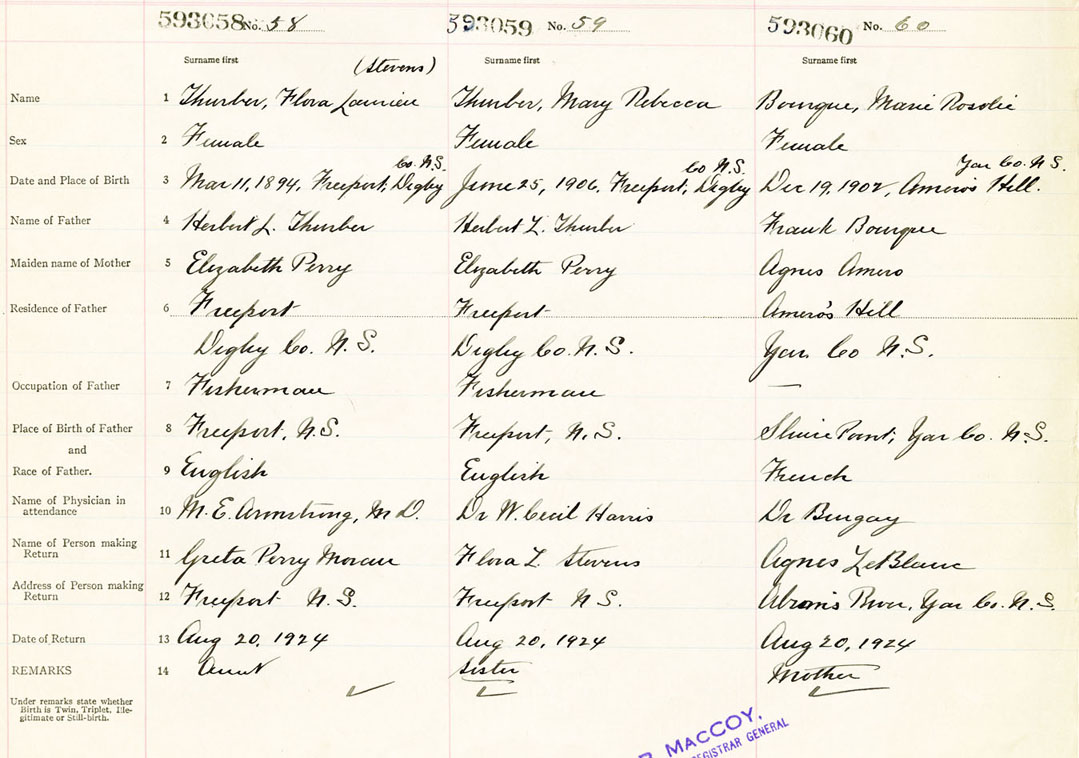 593058 No. 58 593059 No. 59 593060 No. 60
Surname first (Stevens) Surname first Surname first
Name 1 Thurber, Flora Thurber, Mary Rebecca Bourque, Marie Rosalie
Sex 2 Female Female Female
Co. N.S. Co N.S. Yar Co. N.S.
Date and Place of Birth 3 Mar 11, 1894, Freeport, Digby June 25, 1906, Freeport, Digby Dec 19, 1902, Amero's Hill.
Name of Father 4 Herbert L. Thurber Herbert L. Thurber Frank Bourque
Maiden name of Mother 5 Elizabeth Perry Elizabeth Perry Agnes Amero
Residence of Father 6 Freeport Freeport Amero's Hill
Digby Co. N.S. Digby Co. N.S. Yar. Co N.S.
Occupation of Father 7 Fisherman Fisherman —
Place of Birth of Father 8 Freeport, N.S. Freeport, N.S. Point, Yar Co. N.S.
and
Race of Father. 9 English English French
Name of Physician in
attendance 10 M. E. Armstrong, M D. Dr W. Cecil Harris Dr Bingay
Name of Person making
Return 11 Greta Perry Moran Flora L. Stevens Agnes LeBlanc
Address of Person making
Return 12 Freeport N.S. Freeport N S. River, Yar Co. N.S.
Date of Return 13 Aug 20, 1924 Aug 20, 1924 Aug 20, 1924
REMARKS 14 Aunt Sister Mother
Under remarks state whether
Birth is Twin, Triplet, Ille-
gitimate or Still-birth.
MACCOY.
REGISTRAR GENERAL